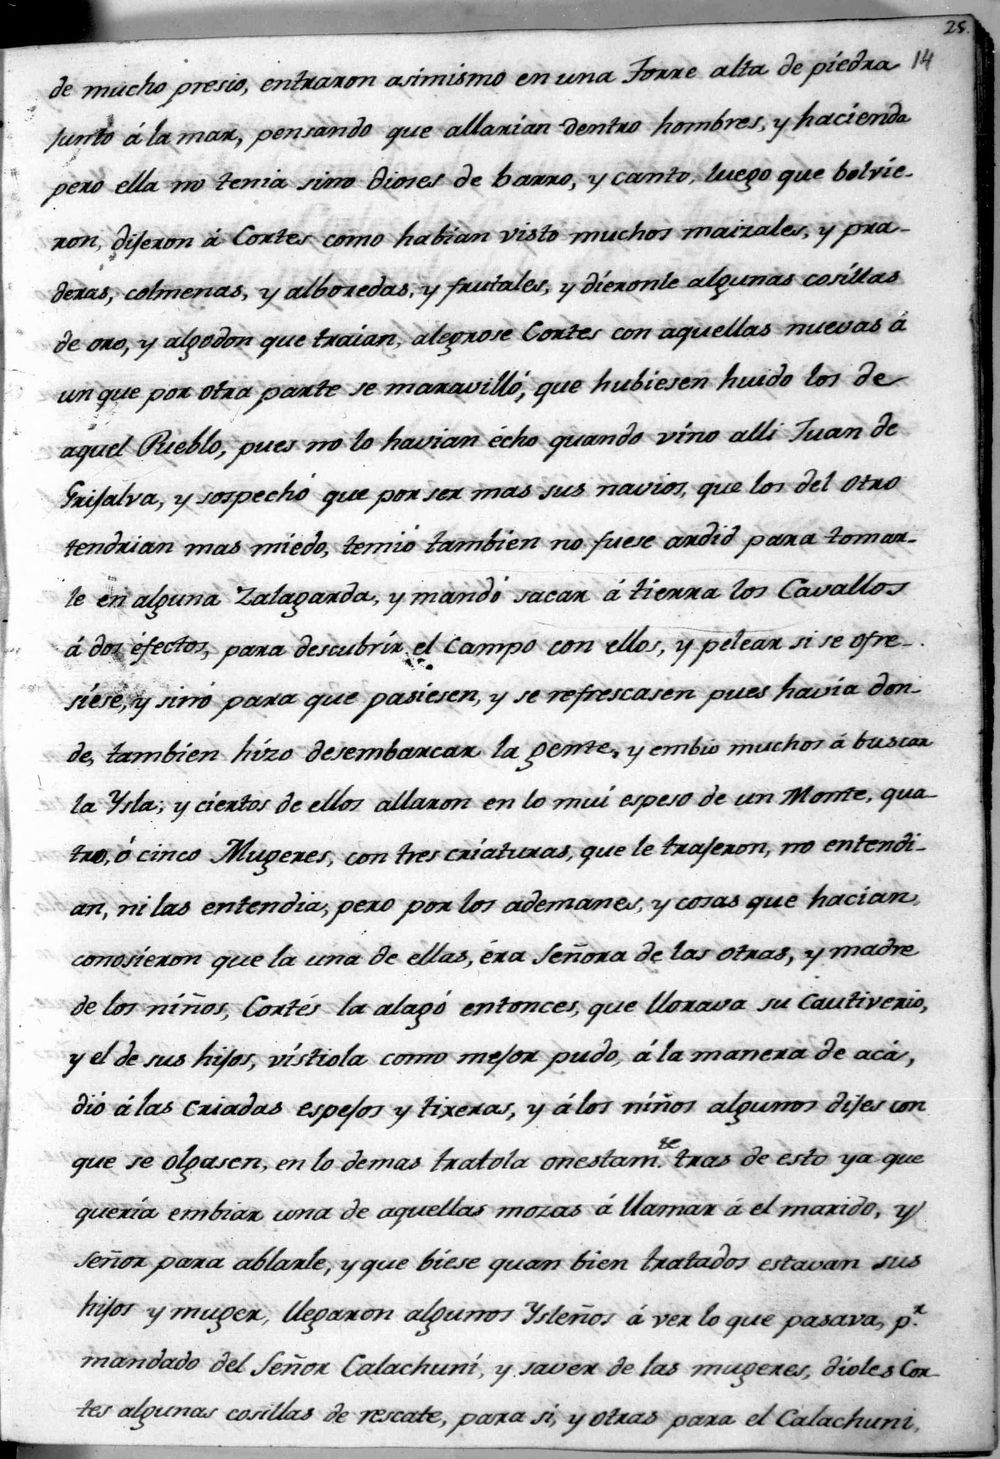 25.
14
de mucho presio, entraron asimismo en una Torre alta de piedra
junto á la mar, pensando que allarian dentro hombres, y hacienda
pero ella no tenia sino dioses de barro, y canto, luego que bolvie-
ron, dijeron á Cortes como habian visto muchos maizales, y pra-
deras, colmenas, y alboredas, y frutales, y dieronle algunas cosillas
de oro, y algodon que traian, alegrose Cortes con aquellas nuevas á
un que por otra parte se maravilló, que hubiesen huido los de
aquel Pueblo, pues no lo havian écho quando vino alli Juan de
Grijalva, y sospechó que por ser mas sus navios, que los del otro
tendrian mas miedo, temió tambien no fuese ardid para tomar-
le en alguna Zalagarda, y mandó sacar á tierra los Cavallos
á dos éfectos, para descubrir el Campo con ellos, y pelear si se ofre-
siese, y sinó para que pasiesen, y se refrescasen pues havia don-
de, tambien hizo desembarcar la gente, y embió muchos á buscar
la Ysla, y ciertos de ellos allaron en lo mui espeso de un Monte, qua-
tro, ó cinco Mugeres, con tres criaturas, que le trajeron, no entendi-
an, ni las entendia, pero por los ademanes, y cosas que hacian,
conosieron que la una de ellas, éra Señora de las otras, y madre
de los niños, Cortés la alagó entonces, que llorava su Cautiverio,
y el de sus hijos, vistiola como mejor pudo, á la manera de acá,
dió á las criadas espejos y tixeras, y á los niños algunos dijes con
que se olgasen, en lo demas tratola onestam.te tras de esto ya que
queria embiar una de aquellas mozas á llamar á el marido, y
señor para ablarle, y que biese quan bien tratados estavan sus
hijos y muger, llegaron algunos Ysleños á ver lo que pasava, p.r
mandado del Señor Calachuni, y saver de las mugeres, dioles Cor-
tes algunas cosillas de rescate, para si, y otras para el Calachuni,